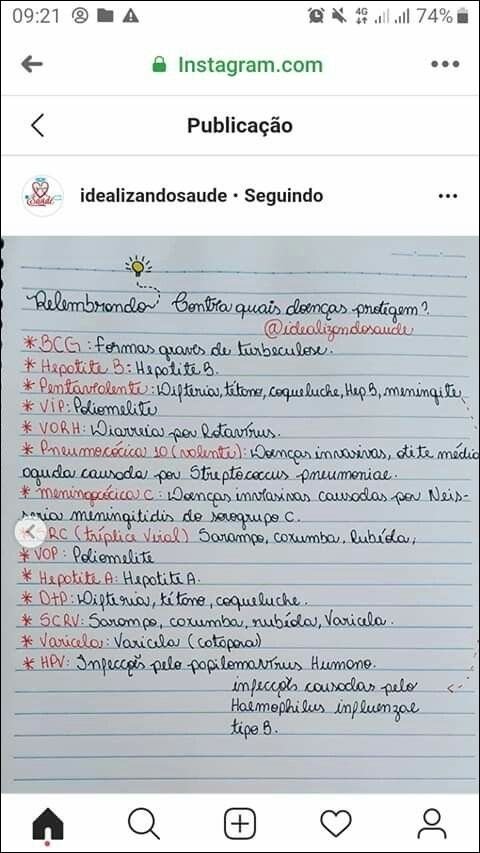 09:21 4G 74%
Instagram.com
Publicação
idealizandosaude • Seguindo
Relembrando Contra quais doenças protigem?
@idealizandosaude
* BCG: Formas graves de turbeculose.
* Hepatite B: Hepatite B.
* Pentavalente: Difteria, tétono, coqueluche, Hep B, meningite
* VIP: Poliomelite
* VORH: Diarreia por Rotavírus.
* Pneumocócica 10 (valente): Doenças invasivas, otite média
aguda causada por Streptococcus pneumoniae.
* meningocócica C: Doenças invasivas causadas por Neis-
seria meningitidis do sorogrupo C.
RC (tríplice Viral) Sarampo, caxumba, Rubéola,
* VOP: Poliomelite
* Hepatite A: Hepatite A.
* DTP: Difteria, tétono, coqueluche.
* SCRV: Sarampo, caxumba, rubéola, Varicela.
* Varicela: Varicela (catapora)
* HPV: Infecções pelo papilomavírus Humano.
infecções causadas pelo
Haemophilus influenzae
tipo B.